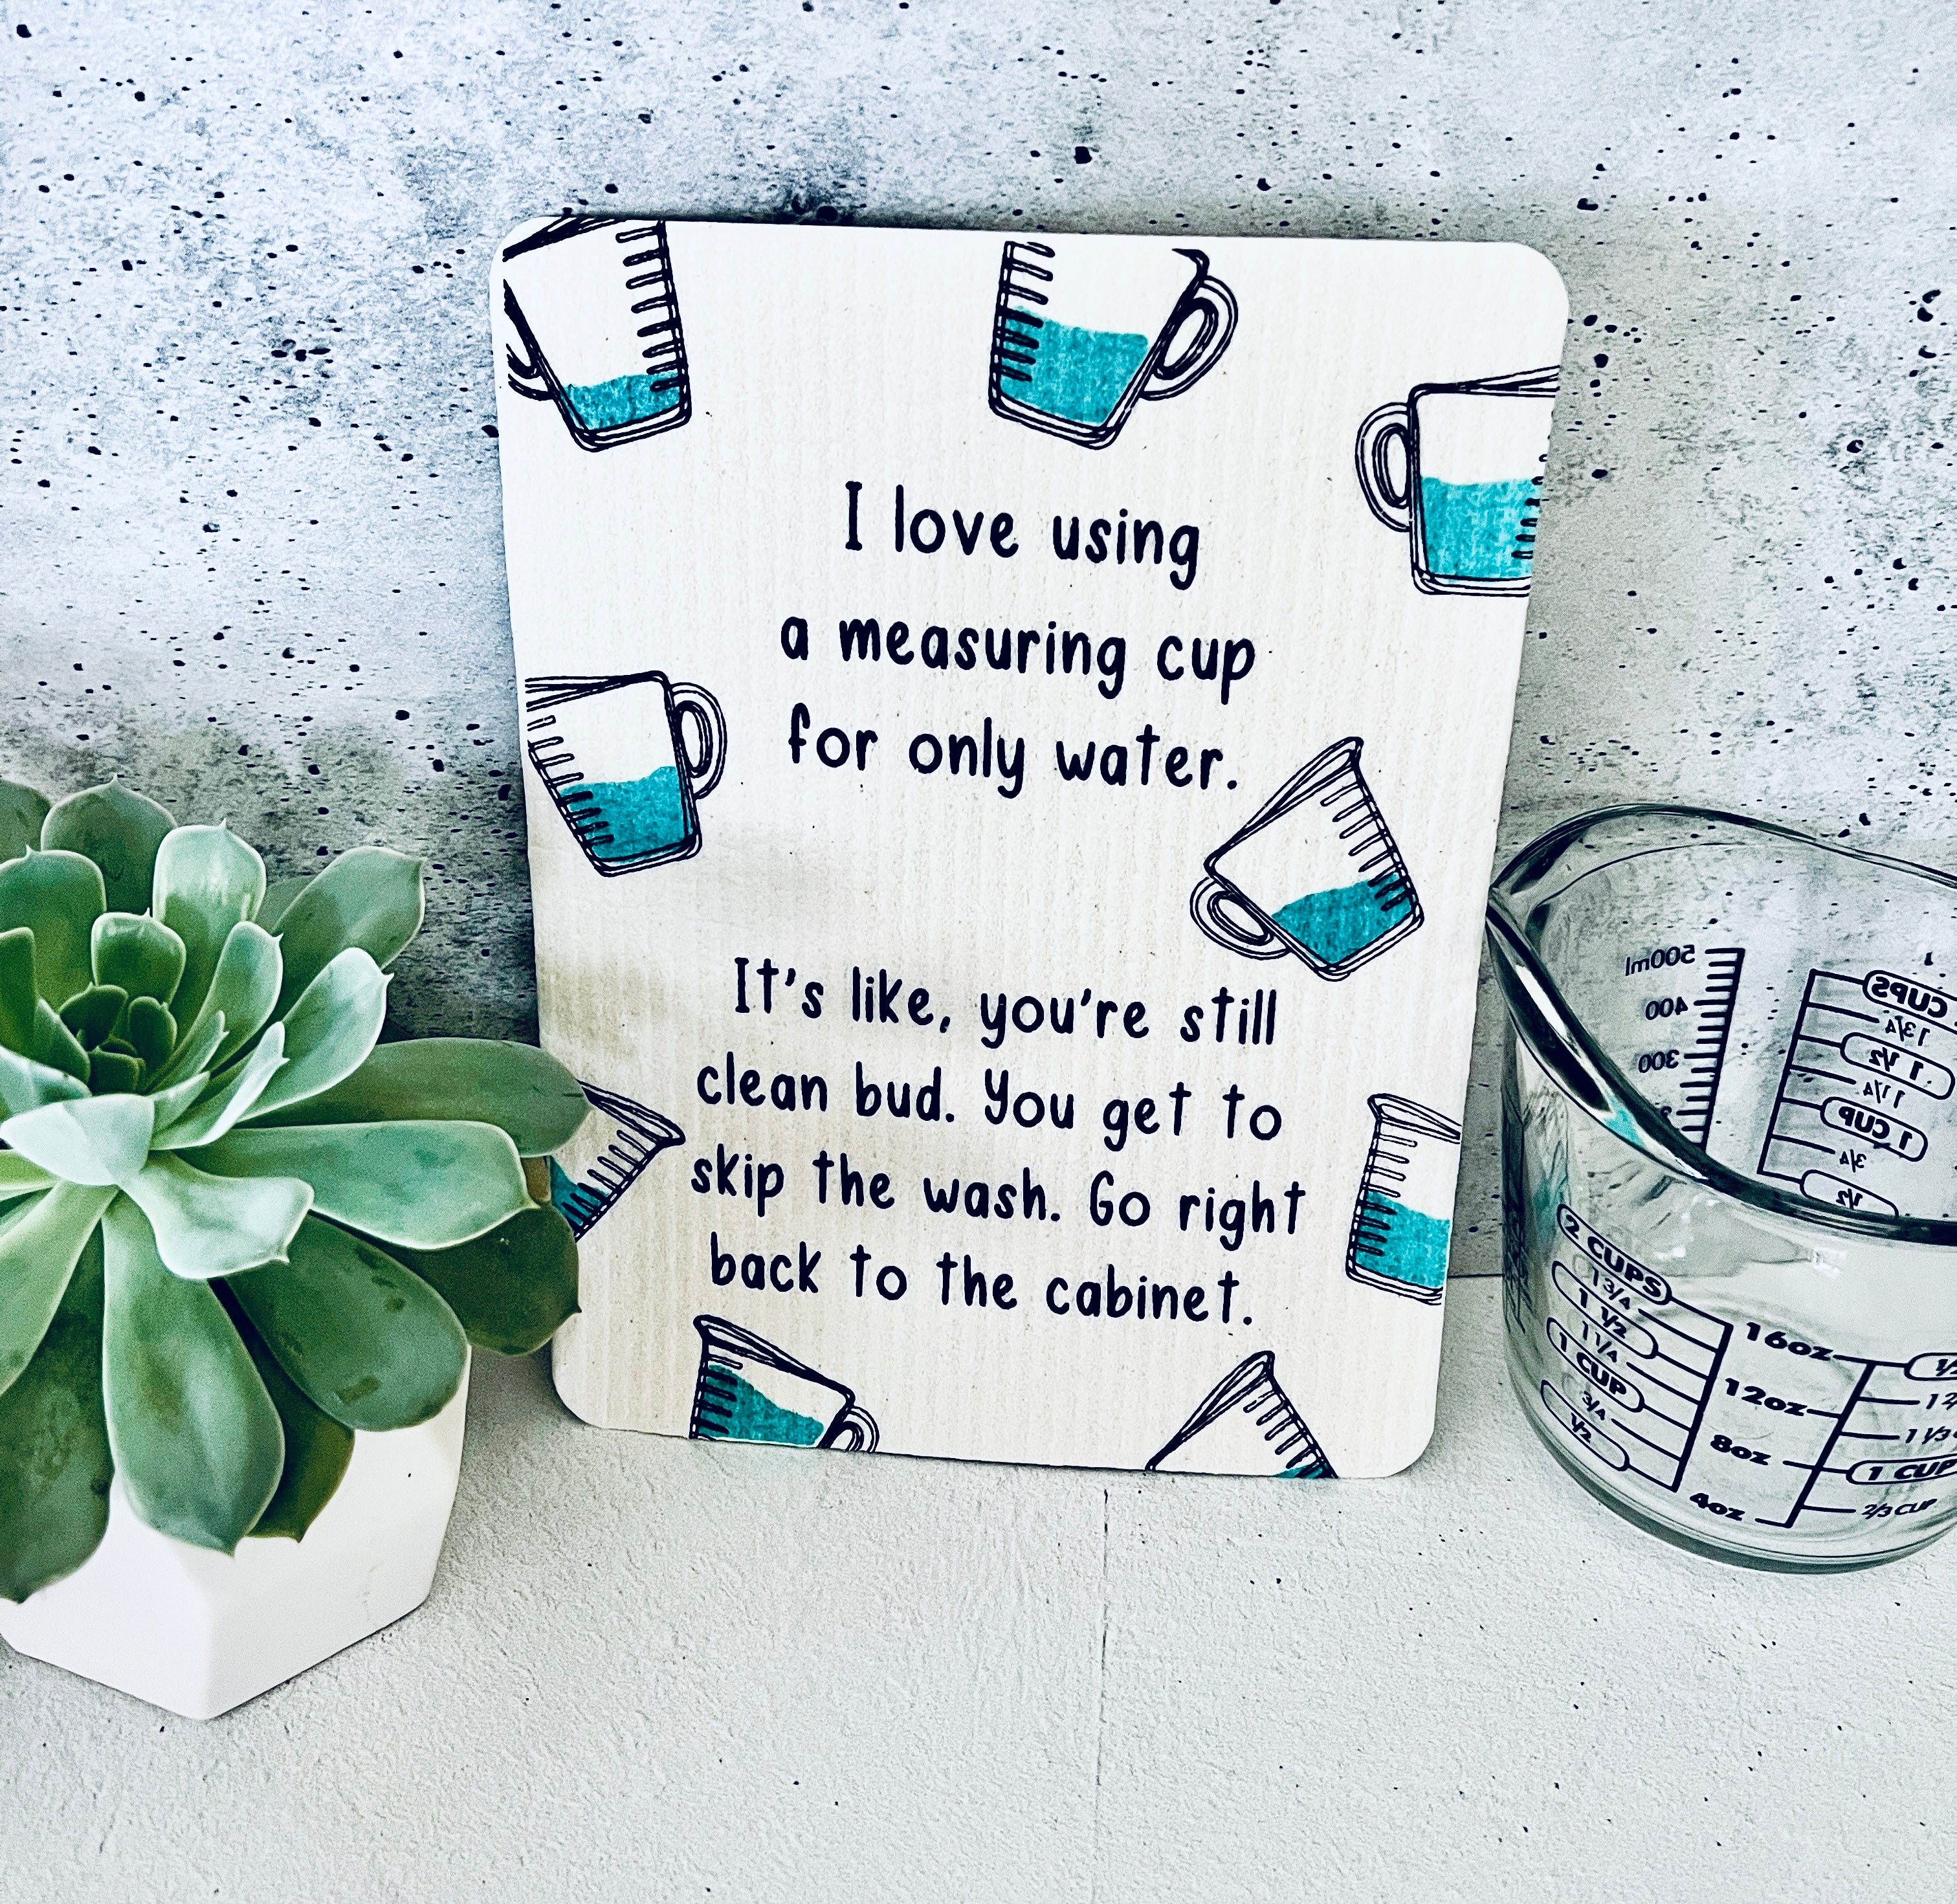 I love using
a measuring cup
for only water.
It's like, you're still
clean bud. You get to
skip the wash. Go right
back to the cabinet.
500ml
400
300
CUPS
1 3/4
1 1/2
1 1/4
1 CUP
3/4
1/2
2 CUPS
1 3/4
1 1/2
1 1/4
1 CUP
3/4
1/2
16oz
12oz
8oz
4oz
1 CUP
2/3 CUP